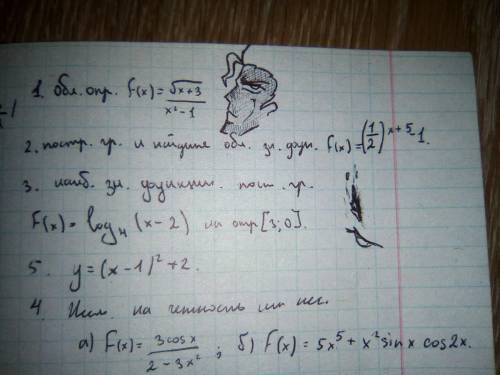 1. обл. опр. f(x) = √x+3 / x² - 1
2. постр. гр. и найдите обл. зн. функ. f(x) = (1/2)^x+5 - 1.
3. наиб. зн. функции. пост. гр.
f(x) = log₄ (x - 2) на отр [3; 0].
5. y = (x - 1)² + 2.
4. Иссл. на четность или неч.
а) f(x) = 3 cos x / 2 - 3x² ; б) f(x) = 5x⁵ + x² sin x cos 2x.